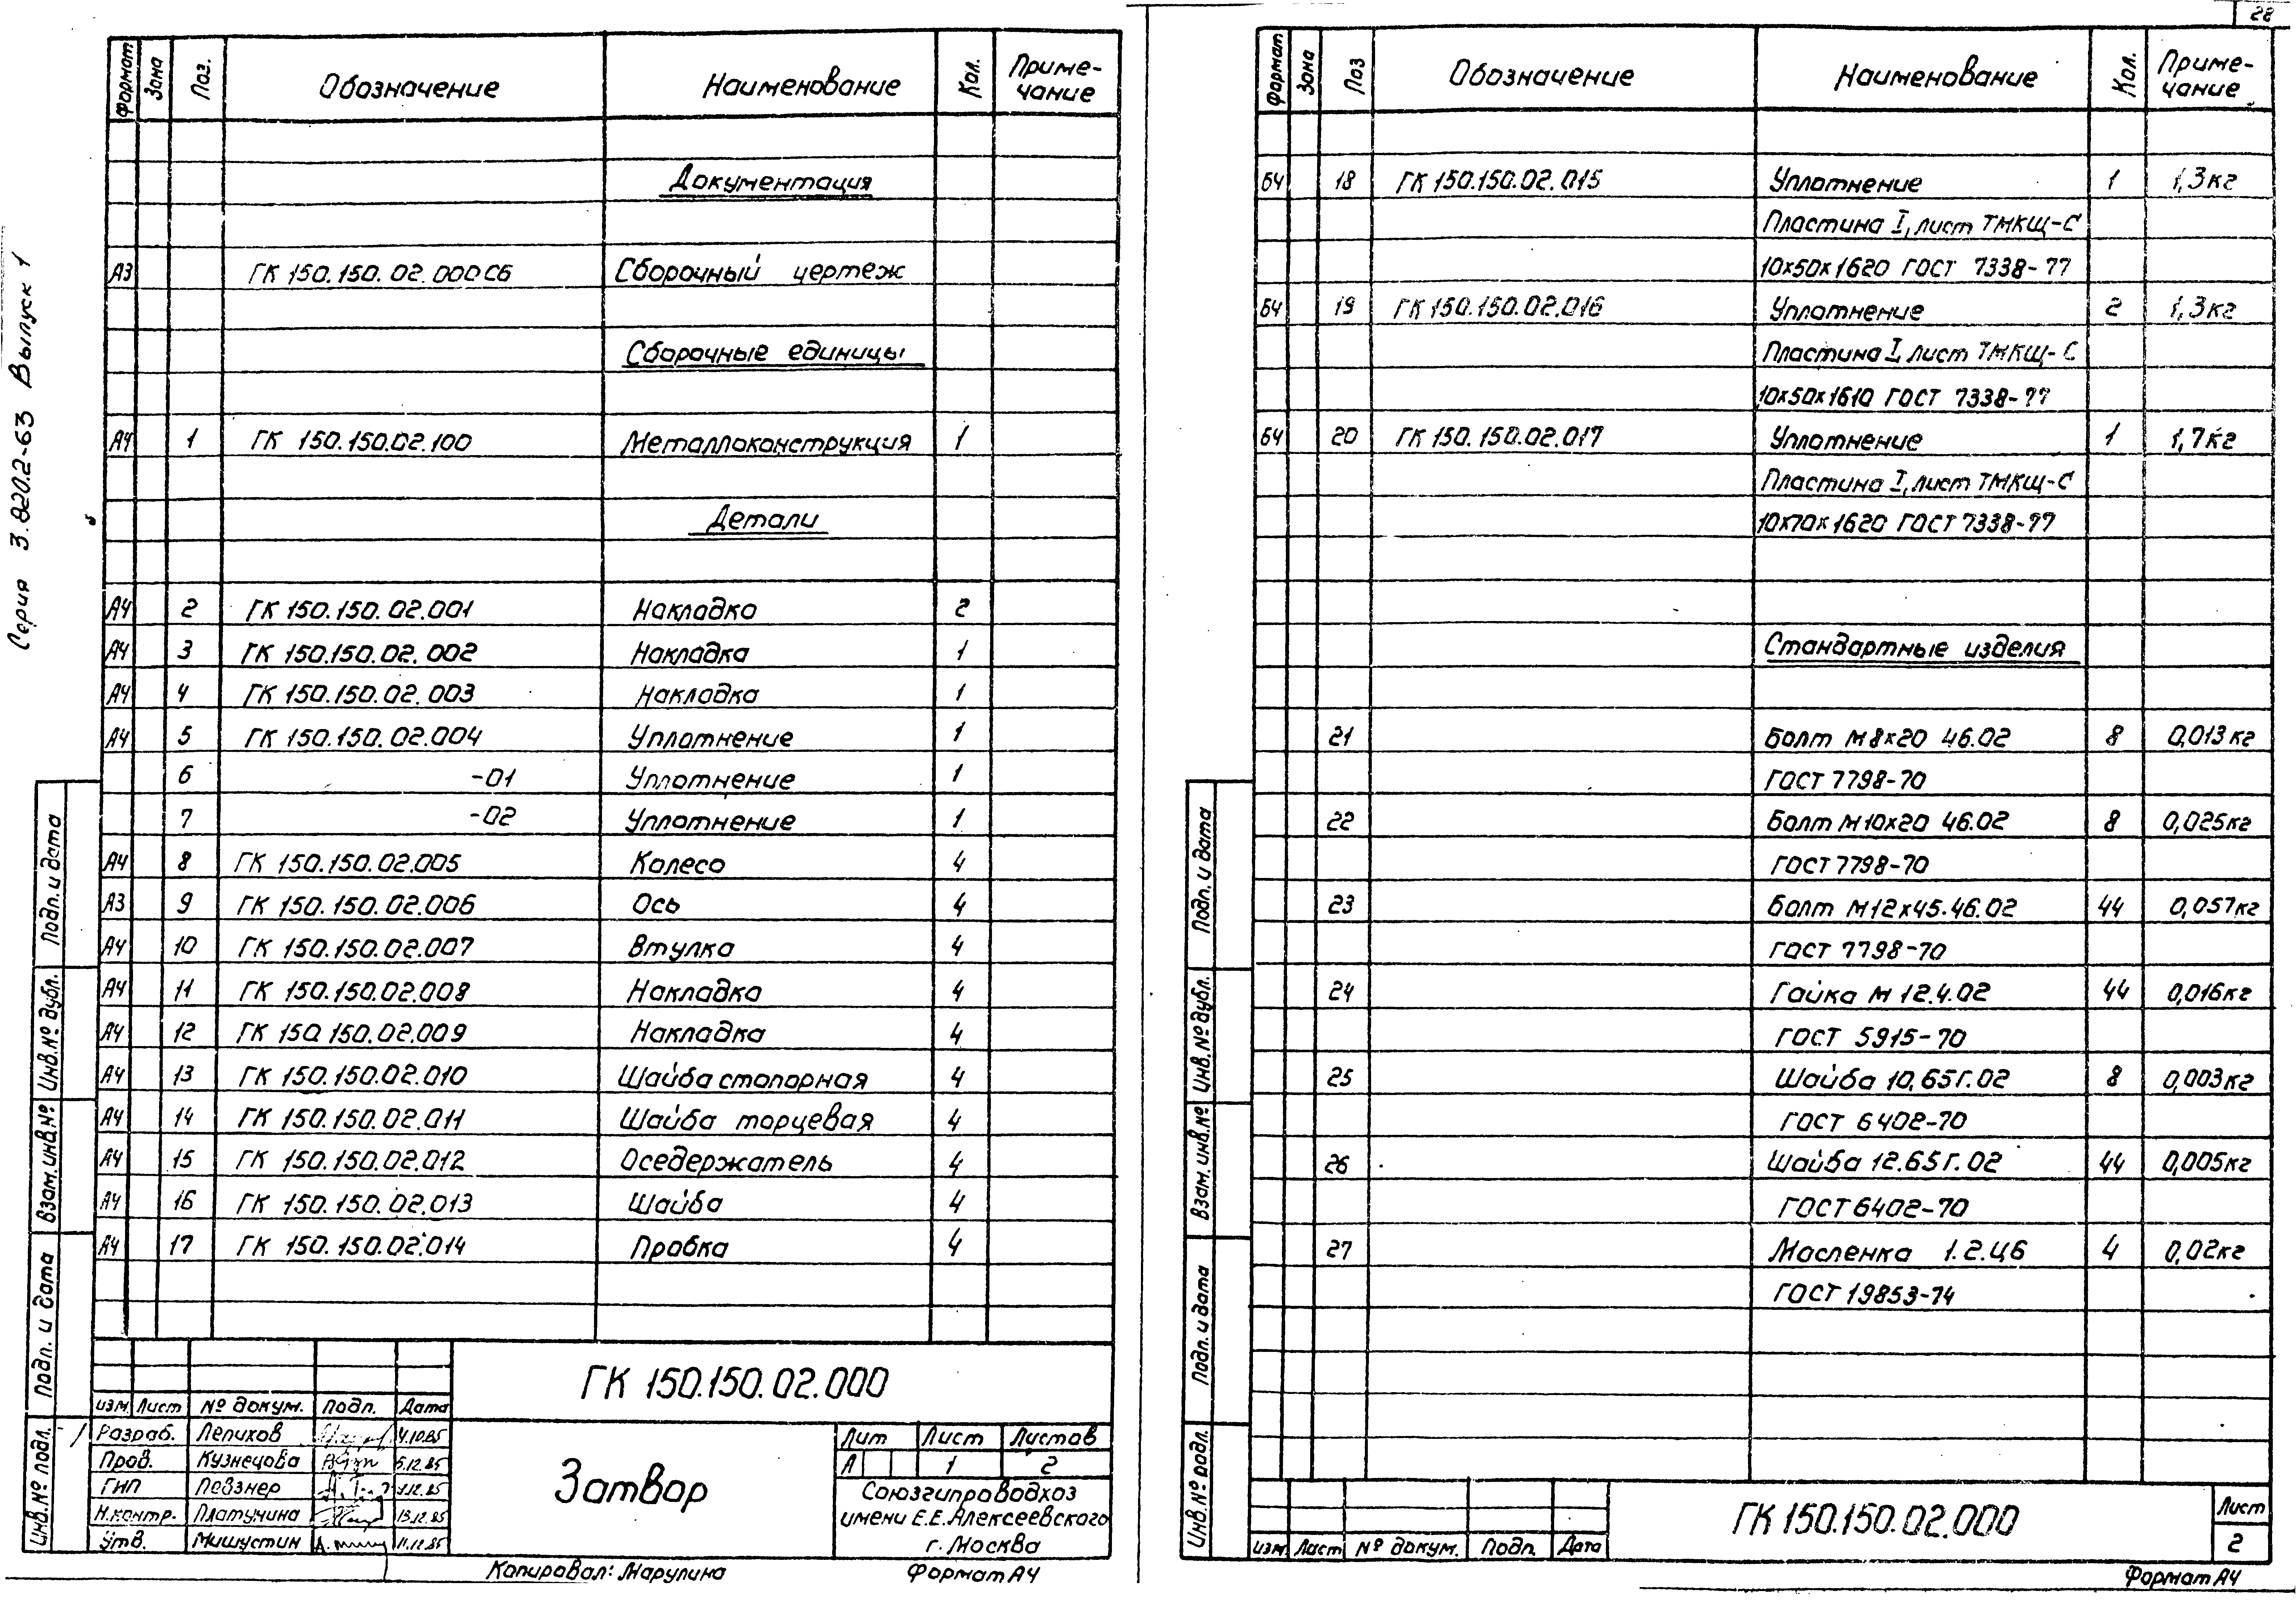 28
Серия 3.820.2-63 Выпуск 1
Формат Зона Поз. Обозначение Наименование Кол. Приме-
чание
Документация
А3 ГК 150.150.02.000СБ Сборочный чертеж
Сборочные единицы
А4 1 ГК 150.150.02.100 Металлоконструкция 1
Детали
А4 2 ГК 150.150.02.001 Накладка 2
А4 3 ГК 150.150.02.002 Накладка 1
А4 4 ГК 150.150.02.003 Накладка 1
А4 5 ГК 150.150.02.004 Уплотнение 1
6 -01 Уплотнение 1
7 -02 Уплотнение 1
А4 8 ГК 150.150.02.005 Колесо 4
А3 9 ГК 150.150.02.006 Ось 4
А4 10 ГК 150.150.02.007 Втулка 4
А4 11 ГК 150.150.02.008 Накладка 4
А4 12 ГК 150.150.02.009 Накладка 4
А4 13 ГК 150.150.02.010 Шайба стопорная 4
А4 14 ГК 150.150.02.011 Шайба торцевая 4
А4 15 ГК 150.150.02.012 Оседержатель 4
А4 16 ГК 150.150.02.013 Шайба 4
А4 17 ГК 150.150.02.014 Пробка 4
Подп. и дата
Инв. № дубл.
Взам. инв. №
Подп. и дата
Инв. № подл.
ГК 150.150.02.000
изм. Лист № докум. Подп. Дата
Разраб. Лепихов 4.10.85
Пров. Кузнецова 5.12.85
ГИП Певзнер 12.85
Н.контр. Платунина 13.12.85
Утв. Мишустин 11.12.85
Затвор
Лит Лист Листов
А 1 2
Союзгипроводхоз
имени Е.Е.Алексеевского
г. Москва
Копировал: Марулина Формат А4
Формат Зона Поз Обозначение Наименование Кол. Приме-
чание
БЧ 18 ГК 150.150.02.015 Уплотнение 1 1,3кг
Пластина I, лист ТМКЩ-С
10х50х1620 ГОСТ 7338-77
БЧ 19 ГК 150.150.02.016 Уплотнение 2 1,3кг
Пластина I, лист ТМКЩ-С
10х50х1610 ГОСТ 7338-77
БЧ 20 ГК 150.150.02.017 Уплотнение 1 1,7кг
Пластина I, лист ТМКЩ-С
10х70х1620 ГОСТ 7338-77
Стандартные изделия
21 Болт М8х20 46.02 8 0,013кг
ГОСТ 7798-70
22 Болт М10х20 46.02 8 0,025кг
ГОСТ 7798-70
23 Болт М12х45.46.02 44 0,057кг
ГОСТ 7798-70
24 Гайка М 12.4.02 44 0,016кг
ГОСТ 5915-70
25 Шайба 10.65Г.02 8 0,003кг
ГОСТ 6402-70
26 Шайба 12.65Г.02 44 0,005кг
ГОСТ 6402-70
27 Масленка 1.2.Ц6 4 0,02кг
ГОСТ 19853-74
Подп. и дата
Инв. № дубл.
Взам. инв. №
Подп. и дата
Инв. № подл.
изм. Лист № докум. Подп. Дата
ГК 150.150.02.000
Лист
2
Формат А4